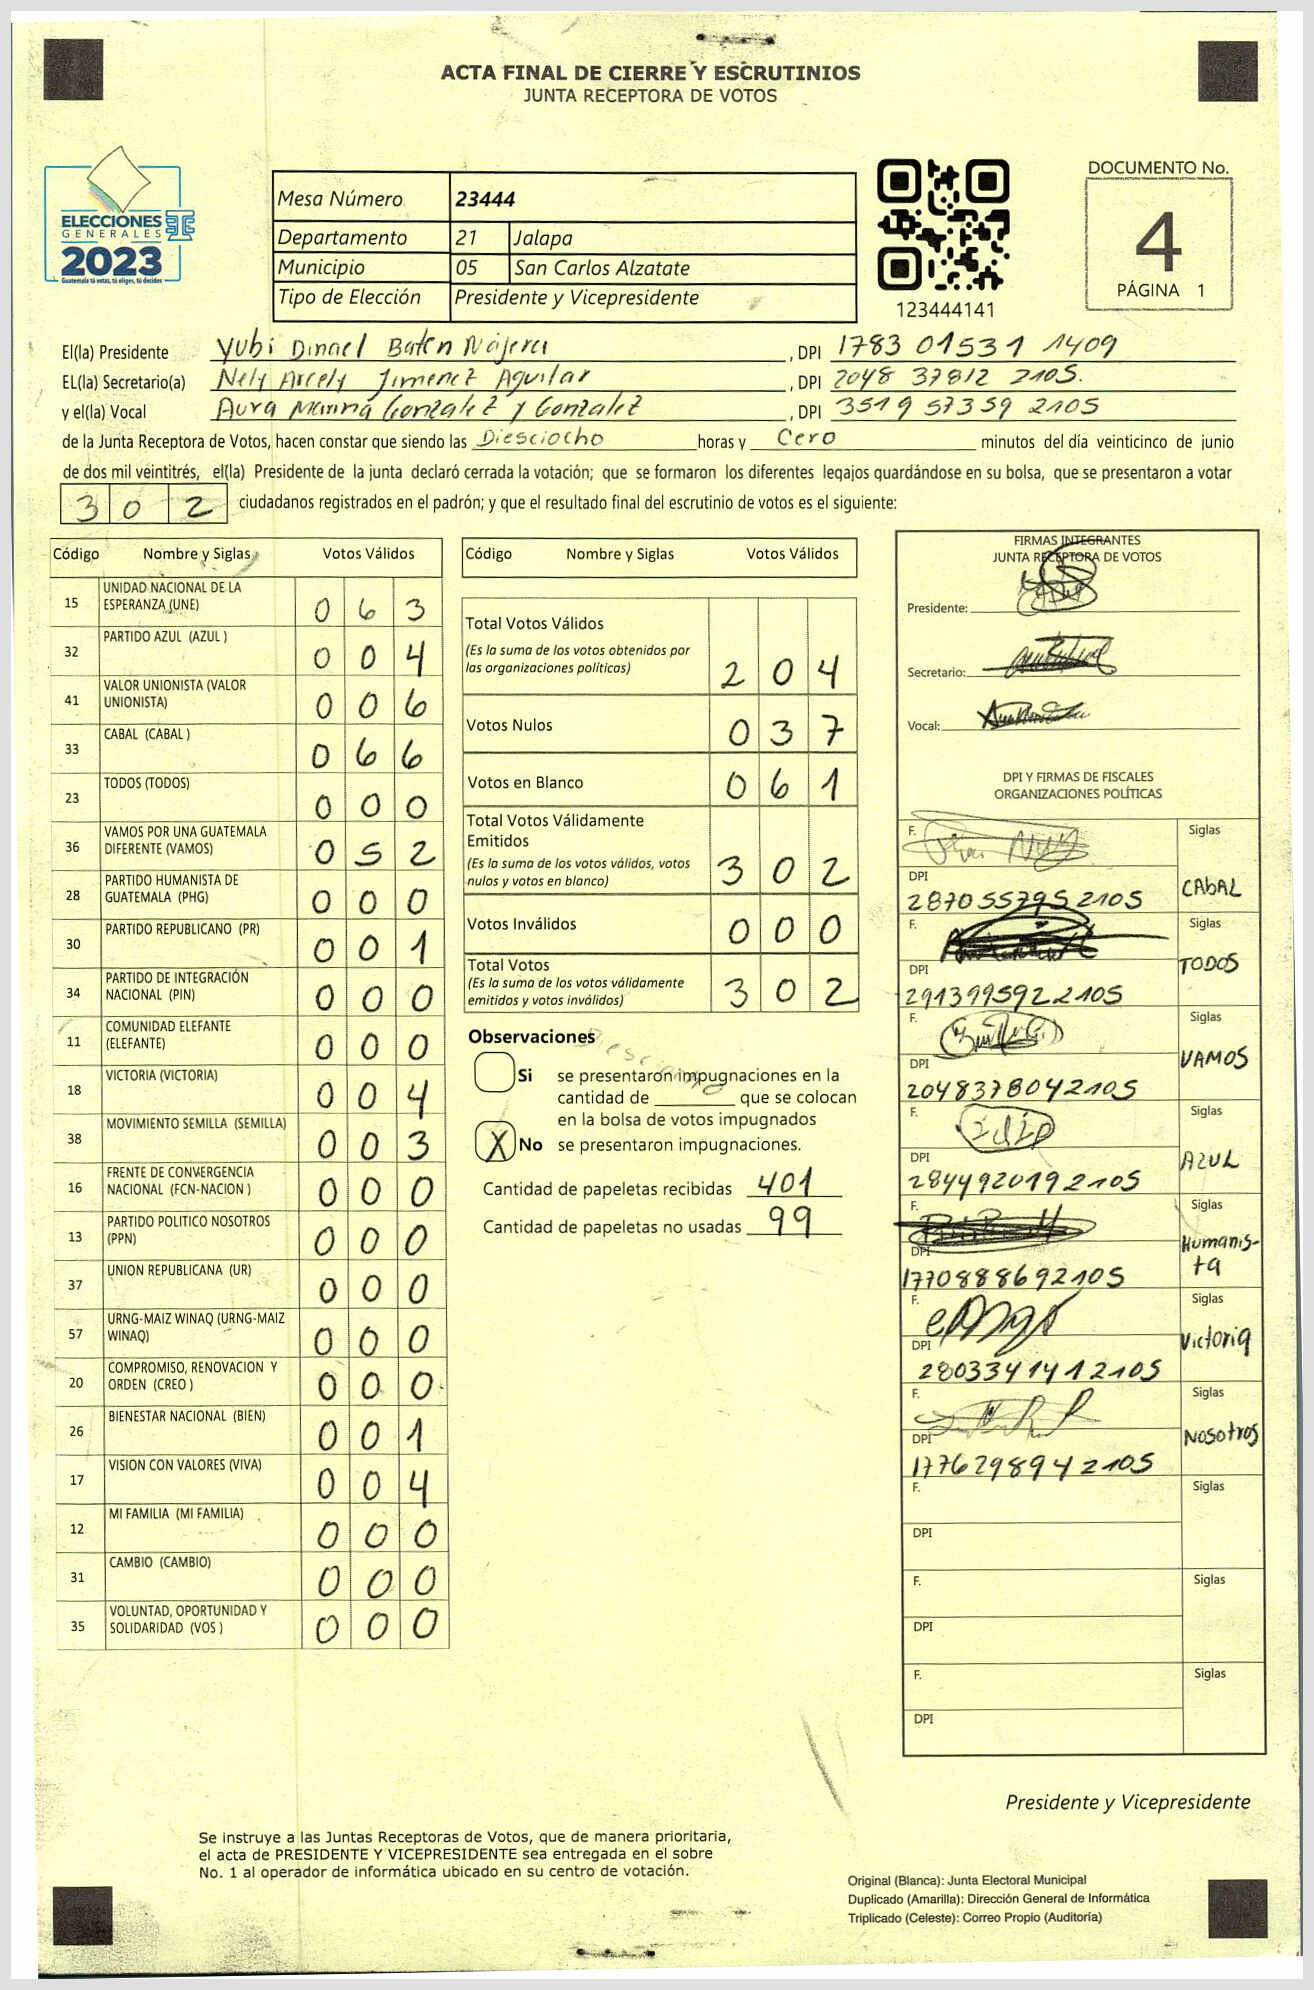 ACTA FINAL DE CIERRE Y ESCRUTINIOS
JUNTA RECEPTORA DE VOTOS
ELECCIONES
GENERALES
2023
Guatemala tú votas, tú eliges, tú decides
Mesa Número 23444
Departamento 21 Jalapa
Municipio 05 San Carlos Alzatate
Tipo de Elección Presidente y Vicepresidente
123444141
DOCUMENTO No.
4
PÁGINA 1
El(la) Presidente Yubi Dinael Baten Nájera, DPI 1783 01531 1409
EL(la) Secretario(a) Nely Arcely Jimenez Aguilar, DPI 2048 37812 2105.
y el(la) Vocal Aura Marina Gonzalez y Gonzalez, DPI 3519 57359 2105
de la Junta Receptora de Votos, hacen constar que siendo las Diesciocho horas y Cero minutos del día veinticinco de junio
de dos mil veintitrés, el(la) Presidente de la junta declaró cerrada la votación; que se formaron los diferentes legajos guardándose en su bolsa, que se presentaron a votar
302 ciudadanos registrados en el padrón; y que el resultado final del escrutinio de votos es el siguiente:
Código Nombre y Siglas Votos Válidos
15 UNIDAD NACIONAL DE LA ESPERANZA (UNE) 063
32 PARTIDO AZUL (AZUL ) 004
41 VALOR UNIONISTA (VALOR UNIONISTA) 006
33 CABAL (CABAL ) 066
23 TODOS (TODOS) 000
36 VAMOS POR UNA GUATEMALA DIFERENTE (VAMOS) 052
28 PARTIDO HUMANISTA DE GUATEMALA (PHG) 000
30 PARTIDO REPUBLICANO (PR) 001
34 PARTIDO DE INTEGRACIÓN NACIONAL (PIN) 000
11 COMUNIDAD ELEFANTE (ELEFANTE) 000
18 VICTORIA (VICTORIA) 004
38 MOVIMIENTO SEMILLA (SEMILLA) 003
16 FRENTE DE CONVERGENCIA NACIONAL (FCN-NACION ) 000
13 PARTIDO POLITICO NOSOTROS (PPN) 000
37 UNION REPUBLICANA (UR) 000
57 URNG-MAIZ WINAQ (URNG-MAIZ WINAQ) 000
20 COMPROMISO, RENOVACION Y ORDEN (CREO ) 000
26 BIENESTAR NACIONAL (BIEN) 001
17 VISION CON VALORES (VIVA) 004
12 MI FAMILIA (MI FAMILIA) 000
31 CAMBIO (CAMBIO) 000
35 VOLUNTAD, OPORTUNIDAD Y SOLIDARIDAD (VOS ) 000
Código Nombre y Siglas Votos Válidos
Total Votos Válidos
(Es la suma de los votos obtenidos por las organizaciones políticas) 204
Votos Nulos 037
Votos en Blanco 061
Total Votos Válidamente Emitidos
(Es la suma de los votos válidos, votos nulos y votos en blanco) 302
Votos Inválidos 000
Total Votos
(Es la suma de los votos válidamente emitidos y votos inválidos) 302
Observaciones
Diesciocho
Si se presentaron impugnaciones en la
cantidad de ________ que se colocan
en la bolsa de votos impugnados
X No se presentaron impugnaciones.
Cantidad de papeletas recibidas 401
Cantidad de papeletas no usadas 99
FIRMAS INTEGRANTES
JUNTA RECEPTORA DE VOTOS
Presidente:
Secretario:
Vocal:
DPI Y FIRMAS DE FISCALES
ORGANIZACIONES POLÍTICAS
F. Siglas
DPI CABAL
287055795 2105
F. Siglas
DPI TODOS
291399592 2105
F. Siglas
DPI VAMOS
204837804 2105
F. Siglas
DPI AZUL
284492019 2105
F. Siglas
DPI Humanis-
ta
177088869 2105
F. Siglas
DPI Victoria
280334141 2105
F. Siglas
DPI NOSOTROS
177629894 2105
F. Siglas
DPI
F. Siglas
DPI
F. Siglas
DPI
Presidente y Vicepresidente
Se instruye a las Juntas Receptoras de Votos, que de manera prioritaria,
el acta de PRESIDENTE Y VICEPRESIDENTE sea entregada en el sobre
No. 1 al operador de informática ubicado en su centro de votación.
Original (Blanca): Junta Electoral Municipal
Duplicado (Amarilla): Dirección General de Informática
Triplicado (Celeste): Correo Propio (Auditoría)